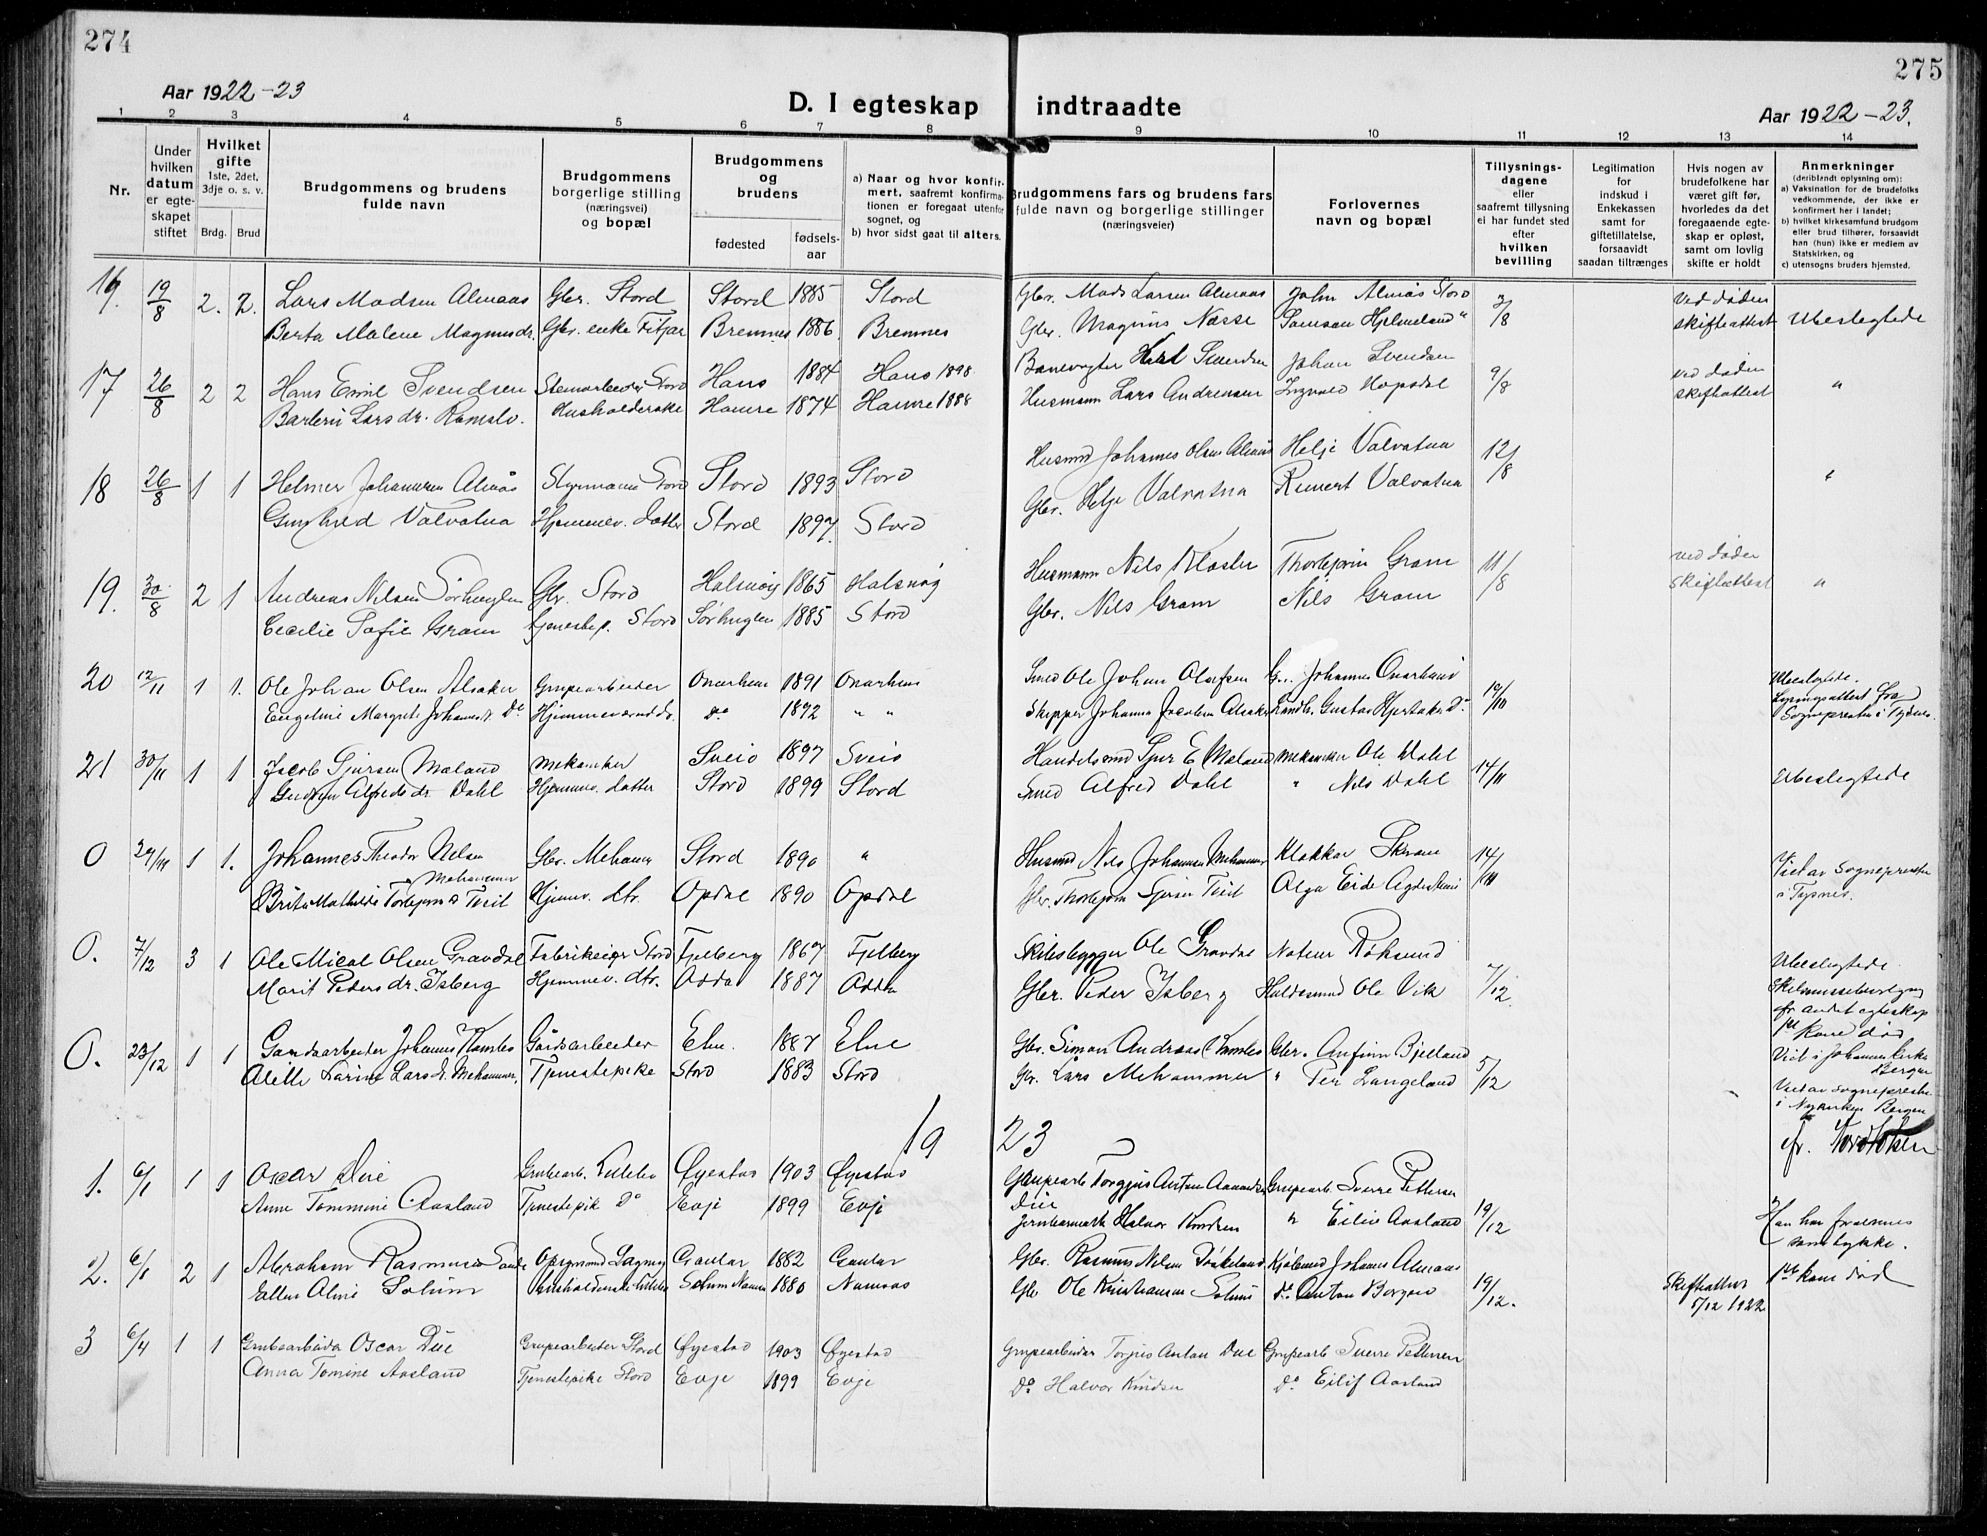 274
275
Aar 1922-23
D. I egteskap indtraadte
Aar 1922-23.
1 2 3 4 5 6 7 8 9 10 11 12 13 14
Nr.
Under hvilken datum er egteskapet stiftet
Hvilket gifte 1ste, 2det, 3dje o. s. v.
Brdg. Brud
Brudgommens og brudens fulde navn
Brudgommens borgerlige stilling (næringsvei) og bopæl
Brudgommens og brudens
fødested fødselsaar
a) Naar og hvor konfirmert, saafremt konfirmationen er foregaat utenfor sognet, og
b) hvor sidst gaat til alters.
Brudgommens fars og brudens fars fulde navn og borgerlige stillinger (næringsveier)
Forlovernes navn og bopæl
Tillysningsdagene eller saafremt tillysning ei har fundet sted efter hvilken bevilling
Legitimation for indskud i Enkekassen samt for giftetillatelse, forsaavidt saadan tiltrænges
Hvis nogen av brudefolkene har været gift før, hvorledes da det foregaaende egteskap er opløst, samt om lovlig skifte er holdt
Anmerkninger (deriblandt oplysning om):
a) Vaksination for de brudefolks vedkommende, der ikke er konfirmert her i landet;
b) hvilket kirkesamfund brudgom eller brud tilhører, forsaavidt han (hun) ikke er medlem av Statskirken, og
c) utensogns bruders hjemsted.
16. 19/8 2. 2. Lars Madsen Almaas Gbr. Stord Stord 1885 Stord Gbr. Mads Larsen Almaas John Almås Stord 3/8 Ved døden Ubeslegtede
Berta Malene Magnusdr. Gbr. enke Fitjar Bremnes 1886 Bremnes Gbr. Magnus Næsse Samson Hjelmeland " skifteattest
17 26/8 2 2 Hans Emil Svendsen Stenarbeider Stord Haus 1884 Haus 1898 Banevogter Svendsen Johan Svendsen 9/8 ved døden "
Larsdr. Husholderske Hamre 1874 Hamre 1888 Husmann Lars Andreasen Ingvald Hopsdal skifteattest
18 26/8 1 1 Helmer Johannesen Almås Styrmann Stord Stord 1893 Stord Husmd Johannes Olsen Almås Helje Valvatna 12/8 "
Gunhild Valvatna Hjemmev. datter Stord 1897 Stord Gbr. Helje Valvatna Reinert Valvatna
19. 30/8 2 1 Andreas Nilsen Sørhuglen Gbr. Stord Halsnøy 1865 Halsnøy Husmann Nils Kloster Thorbjørn Gram 11/8 ved døden "
Cecilie Sofie Gram tjenestep. Stord Sørhuglen 1885 Stord Gbr. Nils Gram Nils Gram skifteattest
20 12/11 1 1. Ole Johan Olsen Alsaker Grupearbeider Onarheim 1891 Onarheim Smed Ole Johan Olafsen Johannes Onarheim 19/10 Ubeslegtede.
Engeline Margrete Johannesdr. Do Hjemmeværende do. 1892 " " Skipper Johannes Jacobsen Alsaker Gustav Hjertaker Do Lysningsattest fra Sogneprest i Tysnes.
21 30/11 1 1 Jacob Sjursen Maland Mekaniker Sveio 1897 Sveio Handelsmd Sjur E. Maland Mekaniker Ole Dahl 14/11 Ubeslegtede
Gudrun Alfredsdr. Dahl Hjemmev. datter Stord 1899 Stord Smed Alfred Dahl " Nils Dahl
0 1 1. Johannes Theodor Nilsen Mehammer Gbr. Mehammer Stord 1890 " Husmd Nils Johannesen Mehammer Klokker Skram 14/11 Viet av Sogneprest
Brita Mathilde Hjemv. dtr. Opdal 1890 Opdal Gbr. Thorbjørn Olga Eide i Tysnes.
0. 7/12 3 1 Ole Mical Olsen Gravdal Fabrikeier Stord Fjelberg 1867 Fjelberg Skibsbygger Ole Gravdal Notem Røksund 7/12. Ubeslegtede.
Marit Pedersdr. Isberg Hjemmev. dtr. Odda 1887 Odda Gbr. Peder Isberg Ole Vik Skilsmissebevilgning fr andet egteskap 1ste kone død
0. 23/12 1 1 Gaardsarbeider Johannes Gårdsarbeider Elne 1887 Elne Gbr. Simon Andreas Gbr. Anfinn Bjelland 5/12 Viet i Johanneskirken Bergen
Alette Karine Larsdr. Mehammer. Tjenestepike Stord 1883 Stord Gbr. Lars Mehammer " Per Langeland Viet av sogneprest i Nykirken Bergen
1923
1. 6/1 1 1 Oscar Due Grubearb. Øyestad 1903 Øyestad Grupearb Torgjus Anton Due Grupearb. Sverre Pettersen 19/12
Anne Tommine Aasland Tjenestepik Do Evje 1899 Evje Halvor Knudsen " Eiliv Aasland Han har forældrenes samtykke.
2. 6/1 2 1 Abraham Rasmussen 1882 Gbr. Rasmus Nilsen Johannes Almaas 19/12. Skifteattest 1ste kone død
Ellen Aline Solum 1880 Namsos Gbr Ole Kristiansen Solum do. Anton 5/12 1922
3 6/4 1 1 Grubearbeider Oscar Due Grupearbeider Stord Øyestad 1903 Øyestad Grupearbeider Torjus Anton Due Grupearb Sverre Pettersen
Anna Tomine Aasland Tjenestepike Stord Evje 1899 Evje Do Halvor Knudsen Do Eilif Aasland